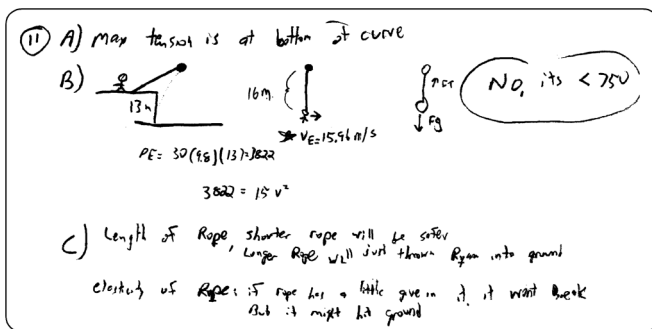 11 A) Max tension is at bottom of curve
B)
13m
16m
V_E=15.96 m/s
↑FT
↓Fg
No, its < 750
PE= 30(9.8)(13)=3822
3822 = 15 v²
C) Length of Rope, shorter rope will be safer
Longer Rope will just thrown Ryan into ground
elasticity of Rope: if rope has a little give in it, it wont break
But it might hit ground